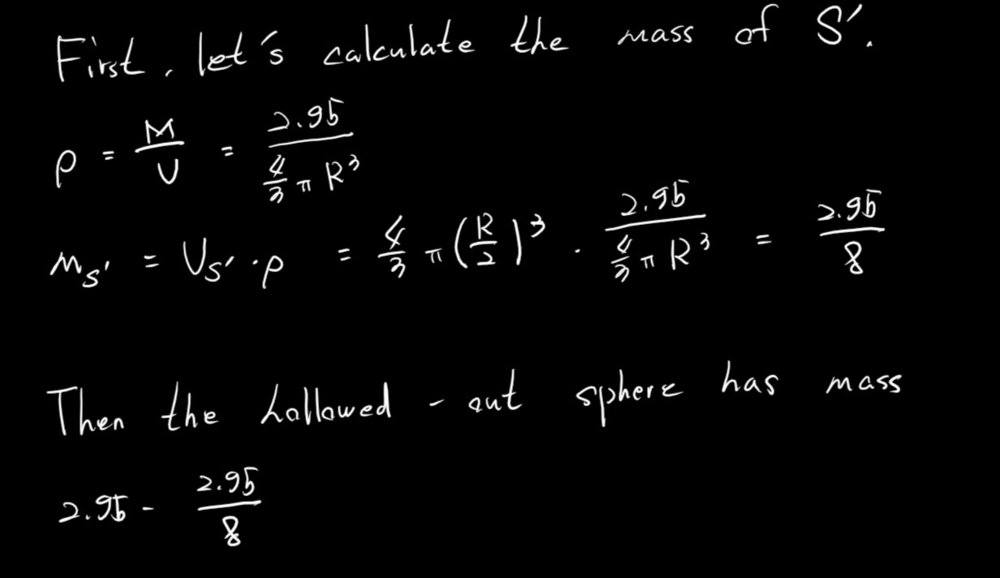 First, let's calculate the mass of S'.
ρ = M/V = 2.95/(4/3 π R³)
m_S' = V_S' · ρ = 4/3 π (R/2)³ · 2.95/(4/3 π R³) = 2.95/8
Then the hollowed-out sphere has mass
2.95 - 2.95/8